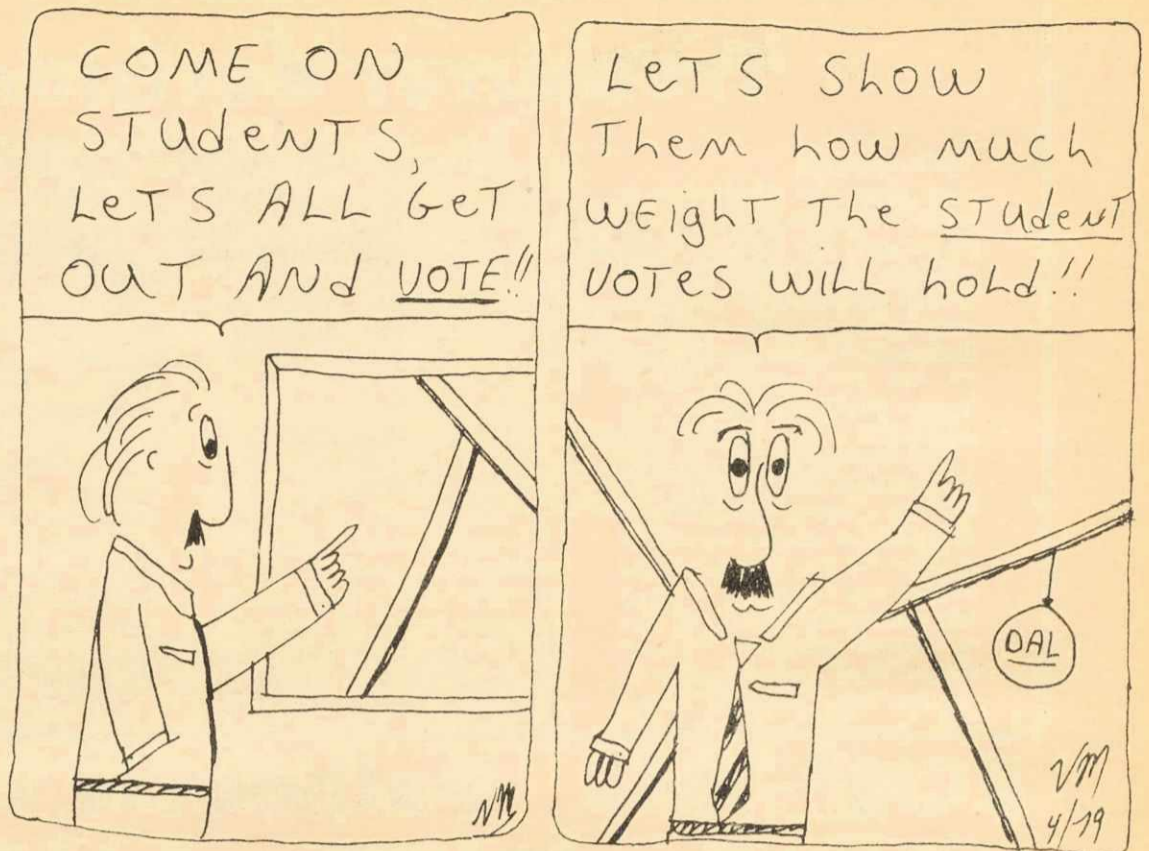 COME ON
STUdeNTS,
LeTS ALL GeT
OUT ANd VOTE!!
LeTS Show
Them how much
WEighT The STUdeNT
VOTes WILL hoLd!!
DAL
VM
VM
4/79